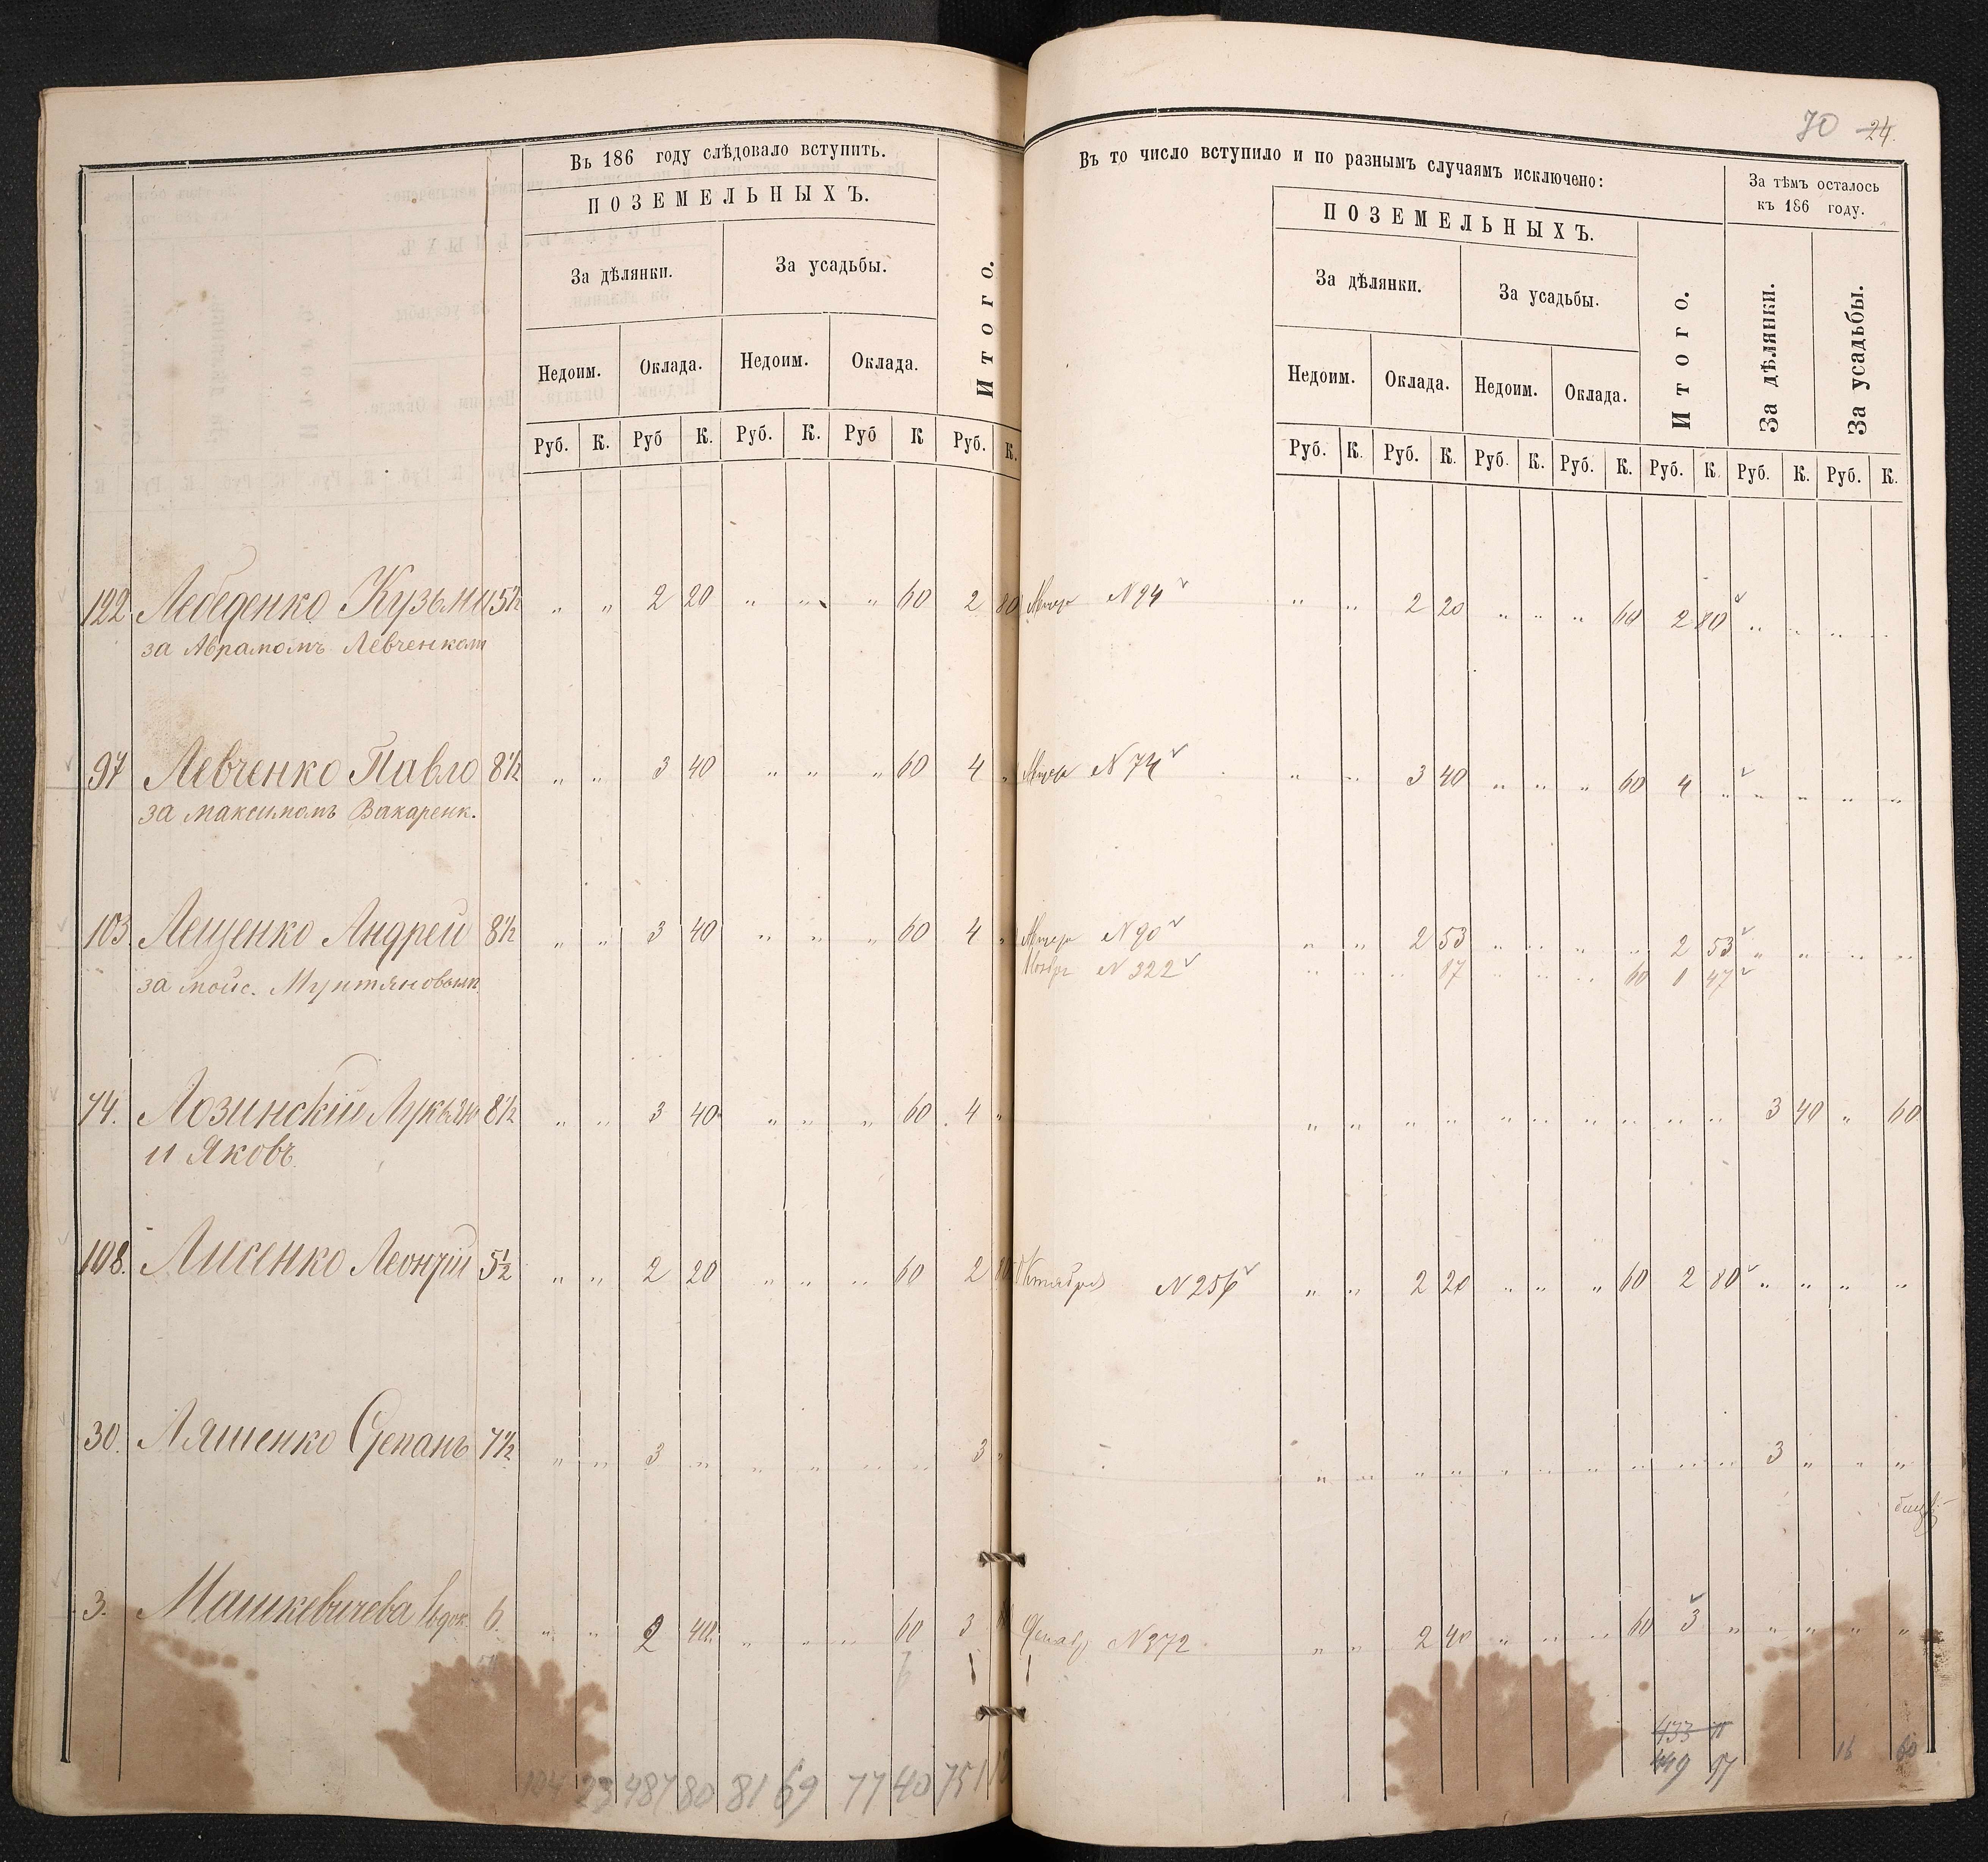 70 24.
Въ 186 году слѣдовало вступить.
ПОЗЕМЕЛЬНЫХЪ.
За дѣлянки. За усадьбы. Итого.
Недоим. Оклада. Недоим. Оклада.
Руб. К. Руб К. Руб. К. Руб К Руб. К.
Въ то число вступило и по разнымъ случаямъ исключено:
За тѣмъ осталось
къ 186 году.
ПОЗЕМЕЛЬНЫХЪ.
За дѣлянки. За усадьбы. Итого. За дѣлянки. За усадьбы.
Недоим. Оклада. Недоим. Оклада.
Руб. К. Руб. К. Руб. К. Руб. К. Руб. К. Руб. К. Руб. К.
122 Лебеденко Кузьма 5½ " " 2 20 " " " 60 2 80 N 94 " " 2 20 " " " 60 2 80 " " " "
за Абрамомъ Левченком
97 Левченко Павло 8½ " " 3 40 " " " 60 4 " N 74 " " 3 40 " " " 60 4 " " " " "
за Максимомъ Вакаренк.
103. Лещенко Андрей 8½ " " 3 40 " " " 60 4 " N 90 " " 2 53 " " " " 2 53 " " " "
Ноябр N 322 " " " 87 " " " 60 1 47
за Мойс. Мунтяновым
74. Лозинскій Лукьян 8½ " " 3 40 " " " 60 4 " " " " " " " " " " " 3 40 " 60
и Яковъ
108. Лисенко Леонтій 5½ " " 2 20 " " " 60 2 80 Октября N 256 " " 2 20 " " " 60 2 80 " " " "
30. Ляшенко Степанъ 7½ " " 3 " " " " " 3 " " " " " " " " " " " 3 " " "
3. Машкевичева Евдок. 6. " " 2 40 " " " 60 3 Декабр N 372 " " 2 40 " " " 60 3 " " " " "
104 23 487 80 81 69 77 40 751 12
433 11
449 97 16 60